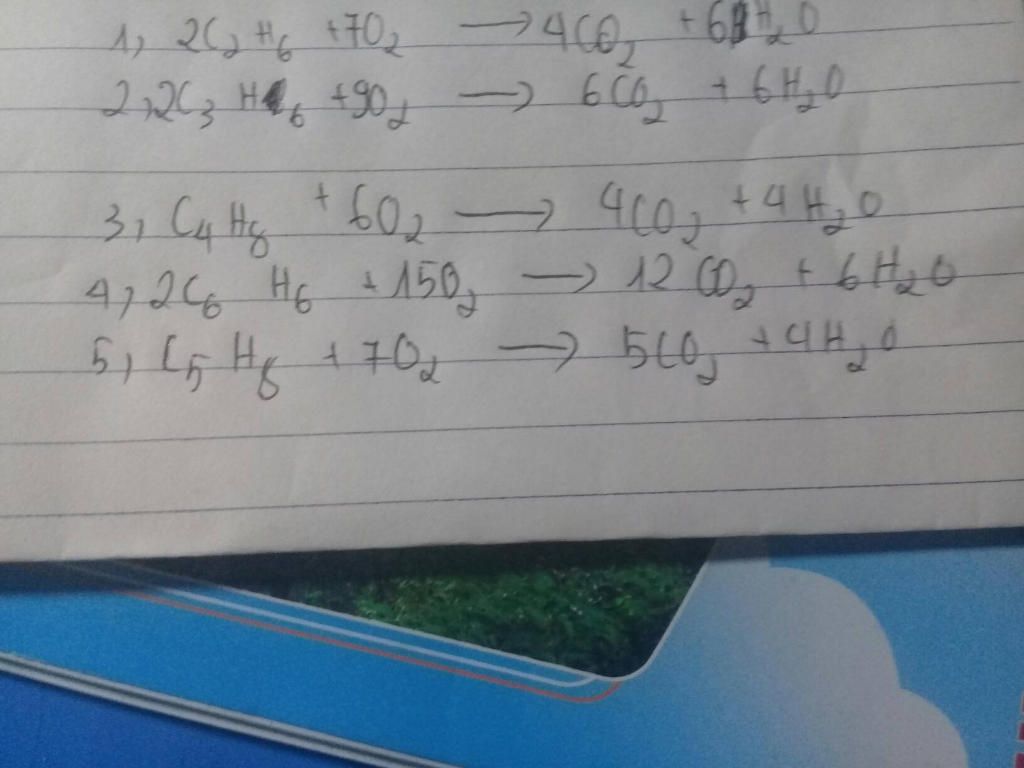 1, 2C₂H₆ +7O₂ → 4CO₂ +6H₂O
2, 2C₃H₆ +9O₂ → 6CO₂ + 6H₂O
3, C₄H₈ + 6O₂ → 4CO₂ + 4H₂O
4, 2C₆H₆ + 15O₂ → 12CO₂ + 6H₂O
5, C₅H₈ + 7O₂ → 5CO₂ + 4H₂O